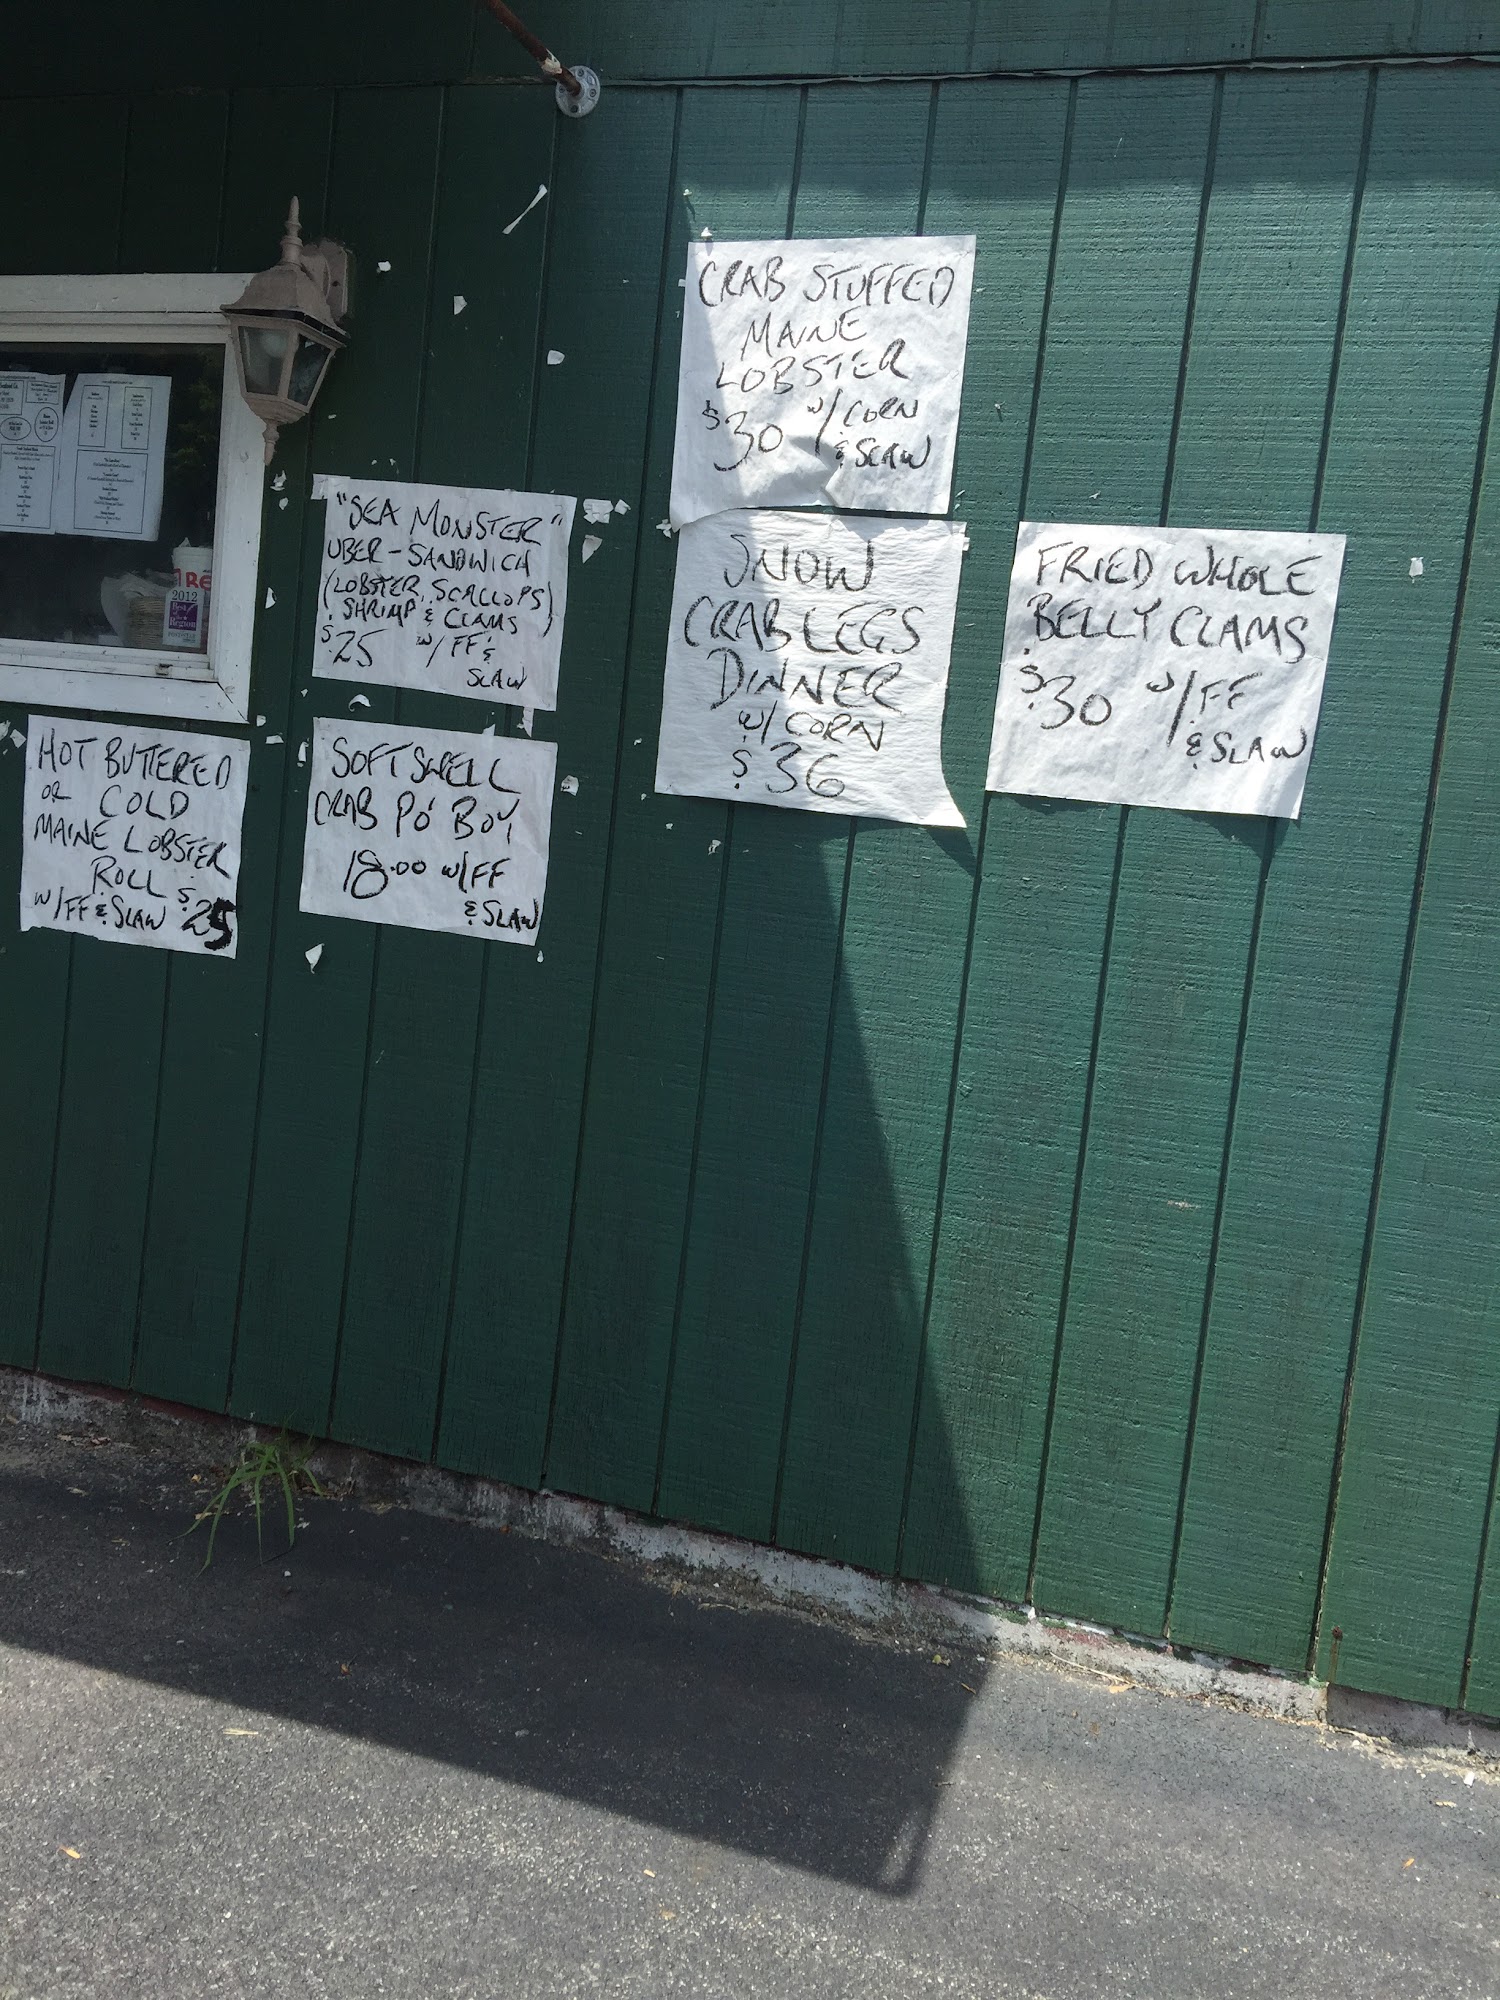 CRAB STUFFED
MAINE
LOBSTER
$30 w/CORN
& SLAW
"SEA MONSTER"
UBER-SANDWICH
(LOBSTER, SCALLOPS)
SHRIMP & CLAMS
$25 w/FF &
SLAW
SNOW
CRAB LEGS
DINNER
w/CORN
$36
FRIED WHOLE
BELLY CLAMS
$30 w/FF
& SLAW
HOT BUTTERED
OR COLD
MAINE LOBSTER
ROLL
w/FF & SLAW $25
SOFT SHELL
CRAB PO' BOY
18.00 w/FF
& SLAW
2012
Best
Region